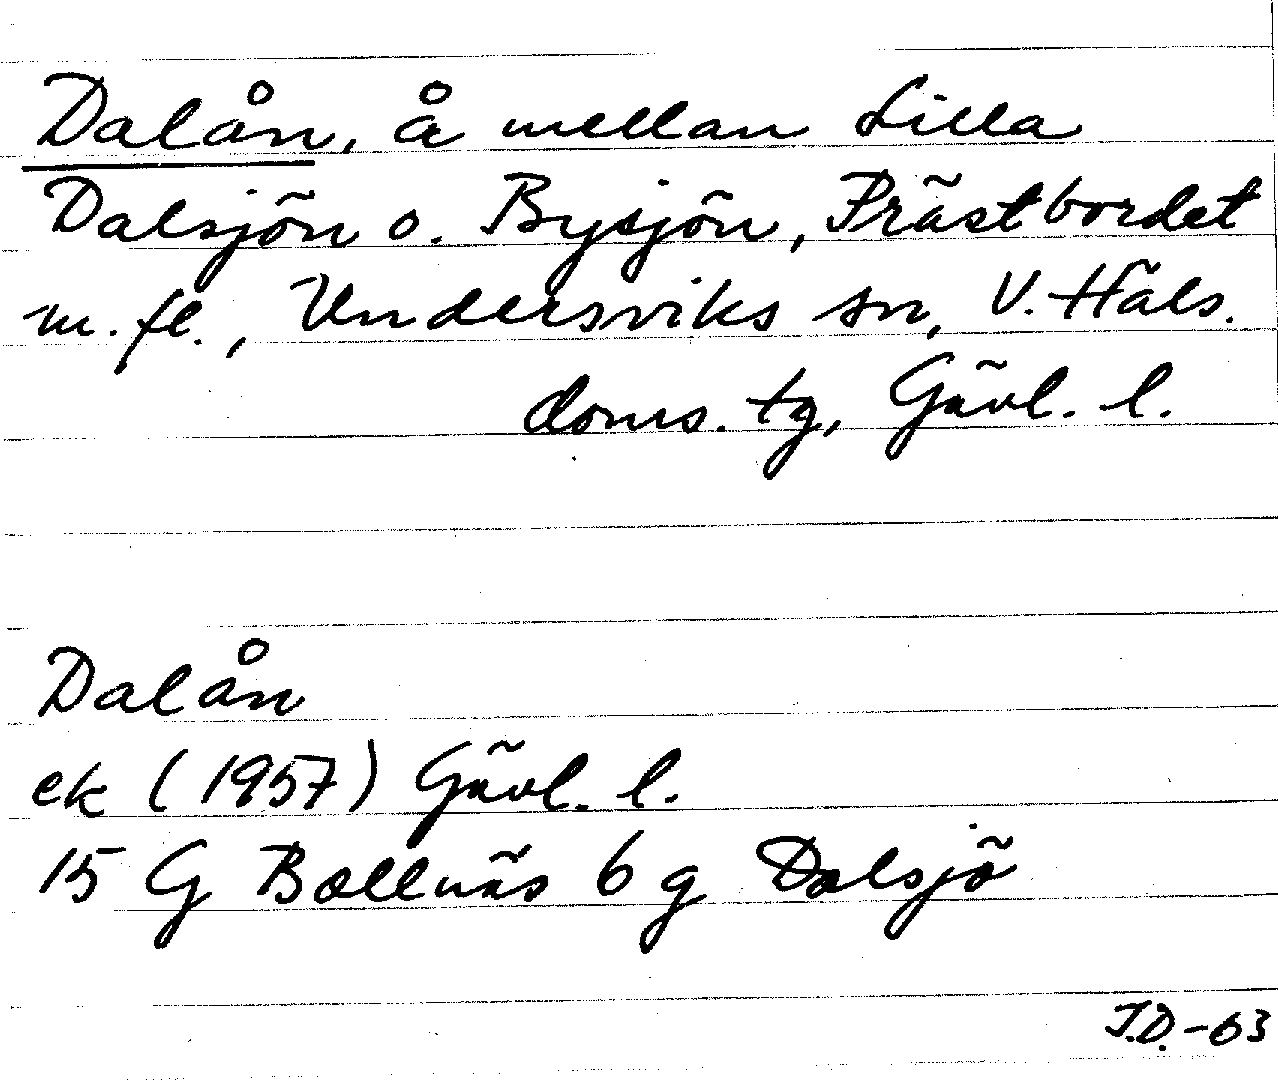 Dalån, å mellan Lilla
Dalsjön o. Bysjön, Prästbordet
m. fl., Undersviks sn, V. Häls.
doms. tg, Gävl. l.
Dalån
ek (1957) Gävl. l.
15 G Bollnäs 6 g Dalsjö
J.D.-63